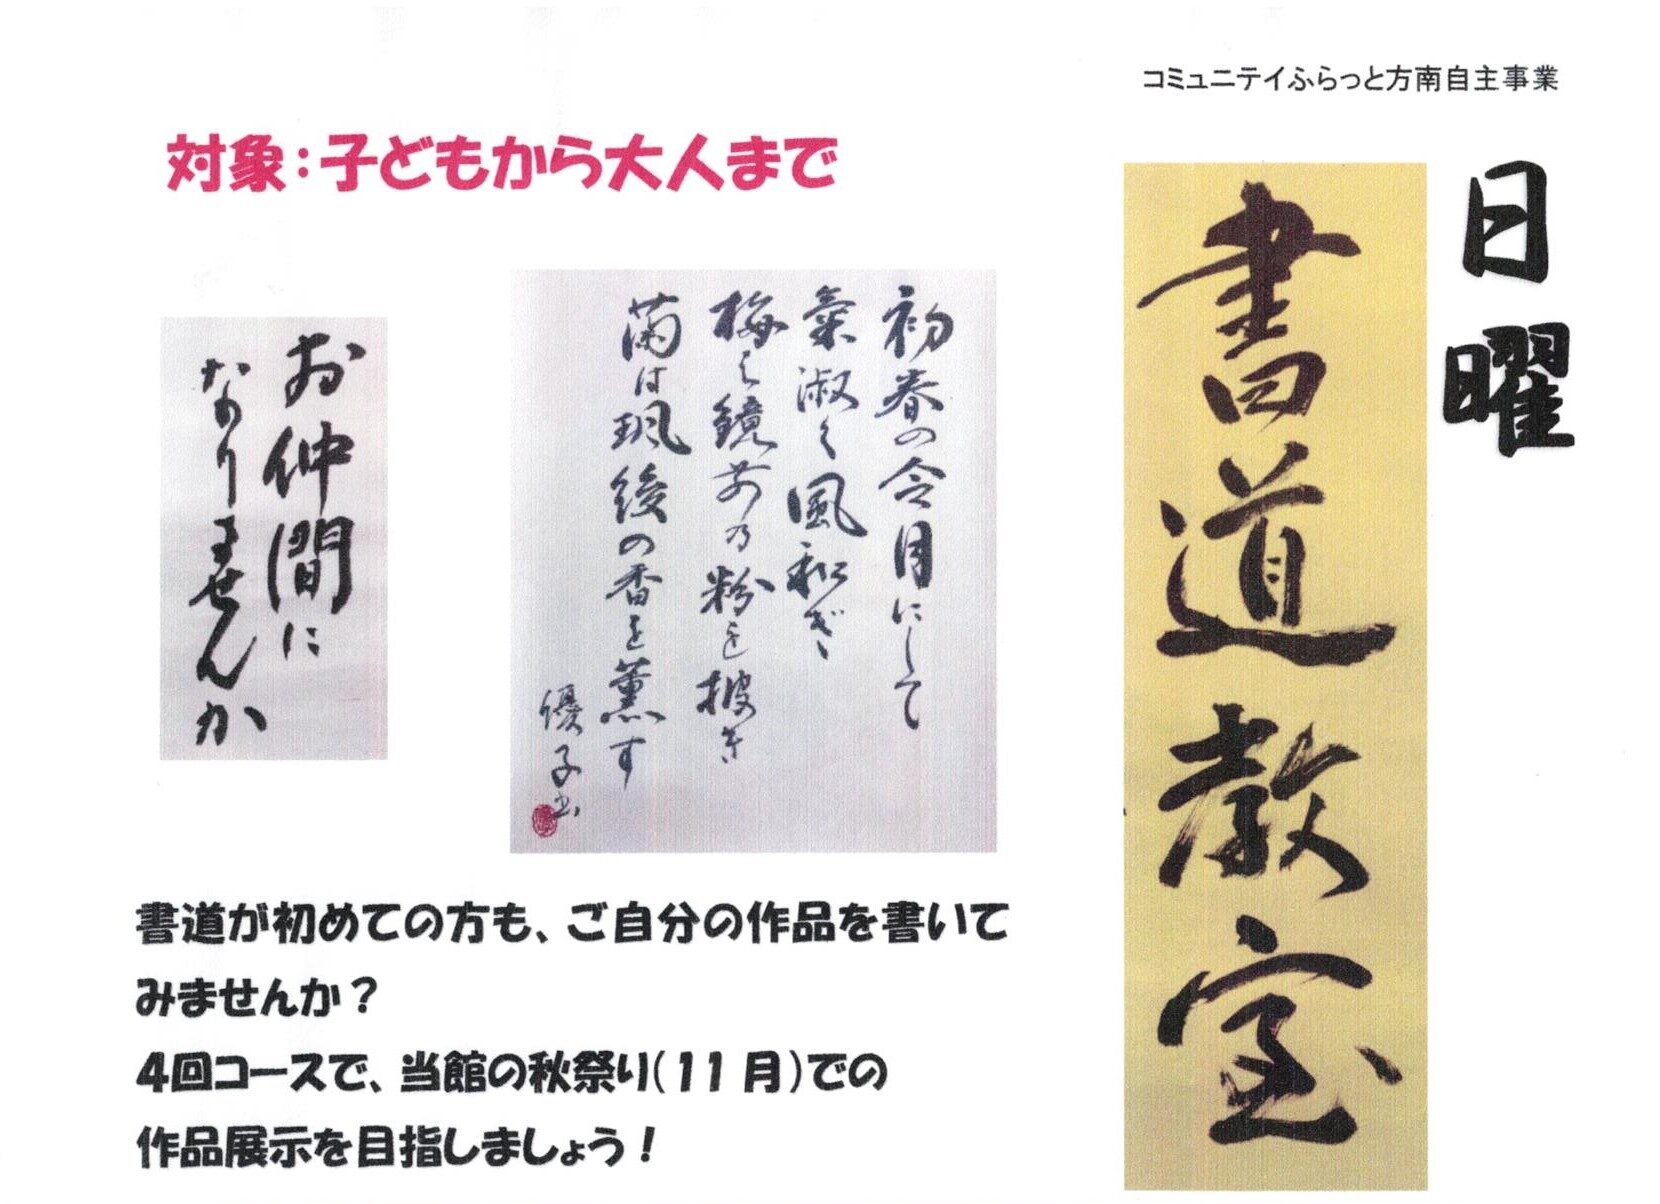 コミュニテイふらっと方南自主事業
日曜
書道教室
対象:子どもから大人まで
初春の令月にして
氣淑く風和ぎ
梅は鏡前の粉を披き
蘭は珮後の香を薫す
優子書
お仲間に
なりませんか
書道が初めての方も、ご自分の作品を書いて
みませんか?
4回コースで、当館の秋祭り(11月)での
作品展示を目指しましょう!